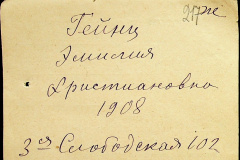 Гейнц
Эмилия
Христиановна
1908
3ья Слободская 102